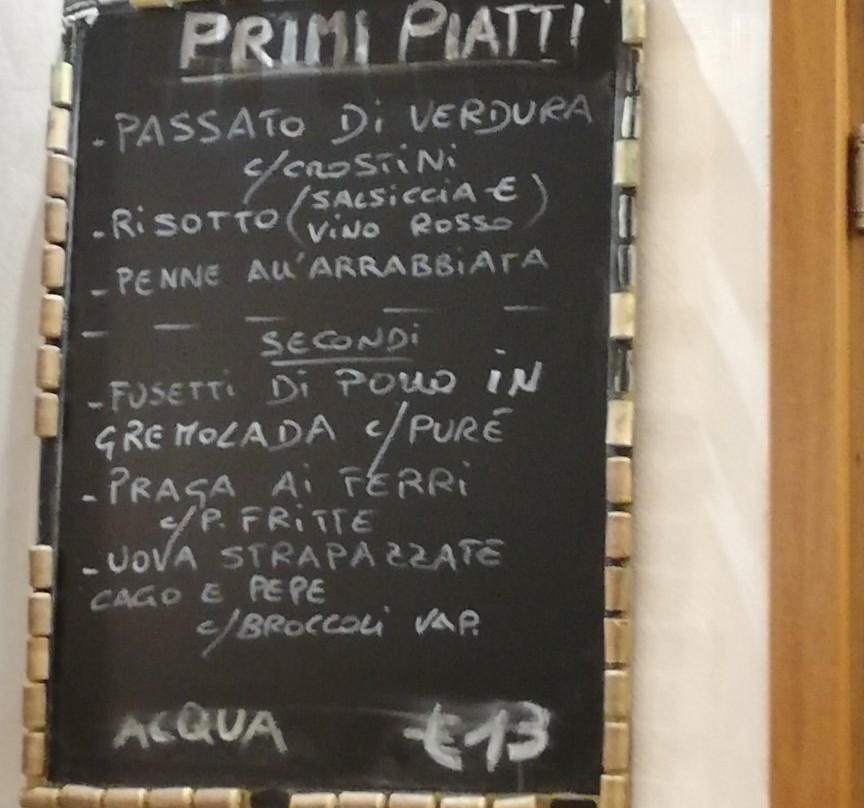 PRIMI PIATTI
- PASSATO Di VERDURA
c/CROSTiNi
- RiSOTTO (SALSiCCiA E
ViNO ROSSO)
- PENNE ALL'ARRABBiATA
SECONDi
- FUSETTi Di POLLO iN
GREMOLADA c/PURÉ
- PRAGA Ai FERRi
c/P. FRiTTE
- UOVA STRAPAZZATE
CACIO E PEPE
c/BROCCOLi VAP.
ACQUA €13